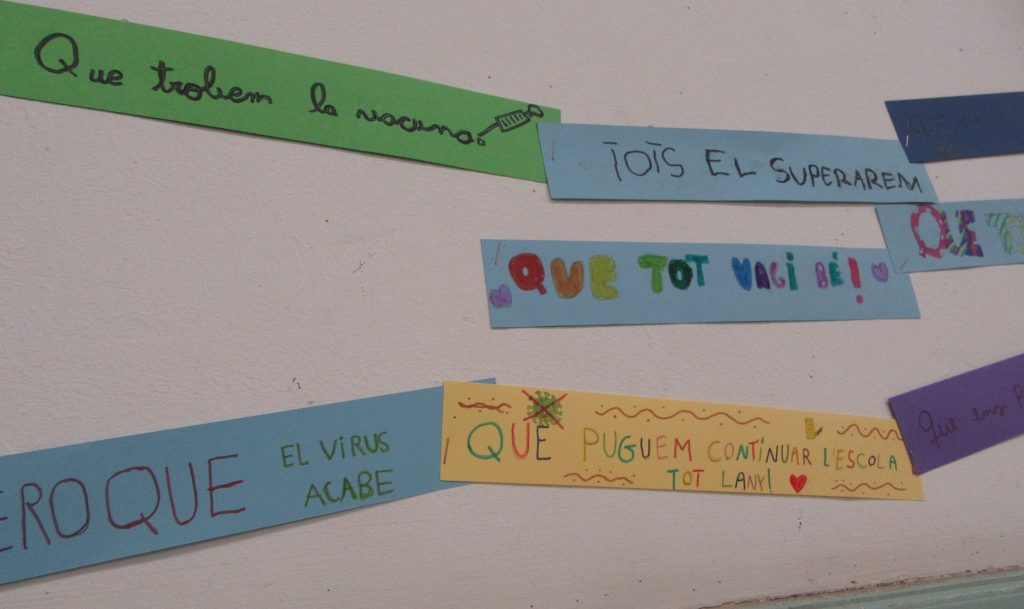 Que trobem la vacuna.
TOTS EL SUPERAREM
QUE
QUE TOT VAGI BÉ!
EL VIRUS
ACABE
QUE
QUE PUGUEM CONTÍNUAR L'ESCOLA
TOT LANY!
Que ens